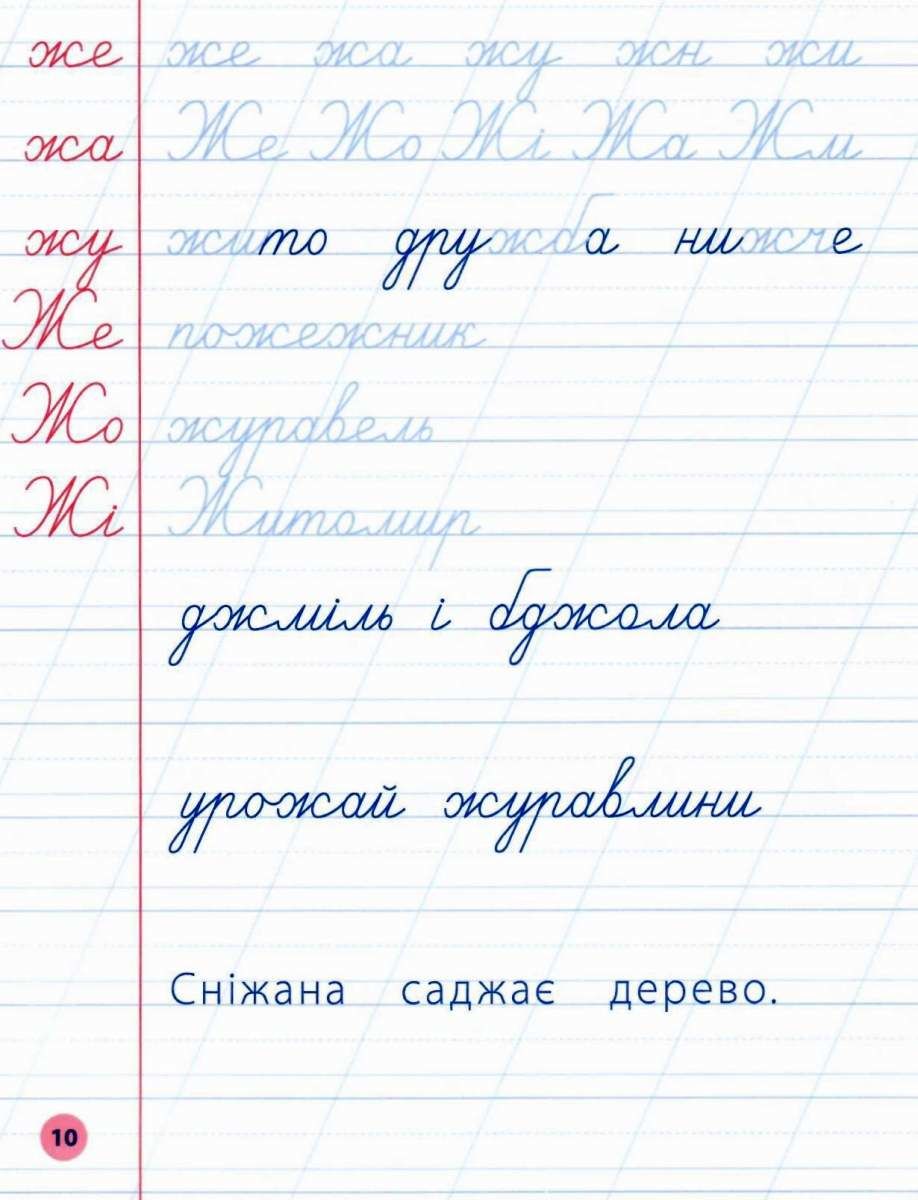 же же жа жу жн жи
жа Же Жо Жі Жа Жм
жу жито дружба нижче
Же пожежник
Жо журавель
Жі Житомир
джміль і бджола
урожай журавлини
Сніжана саджає дерево.
10